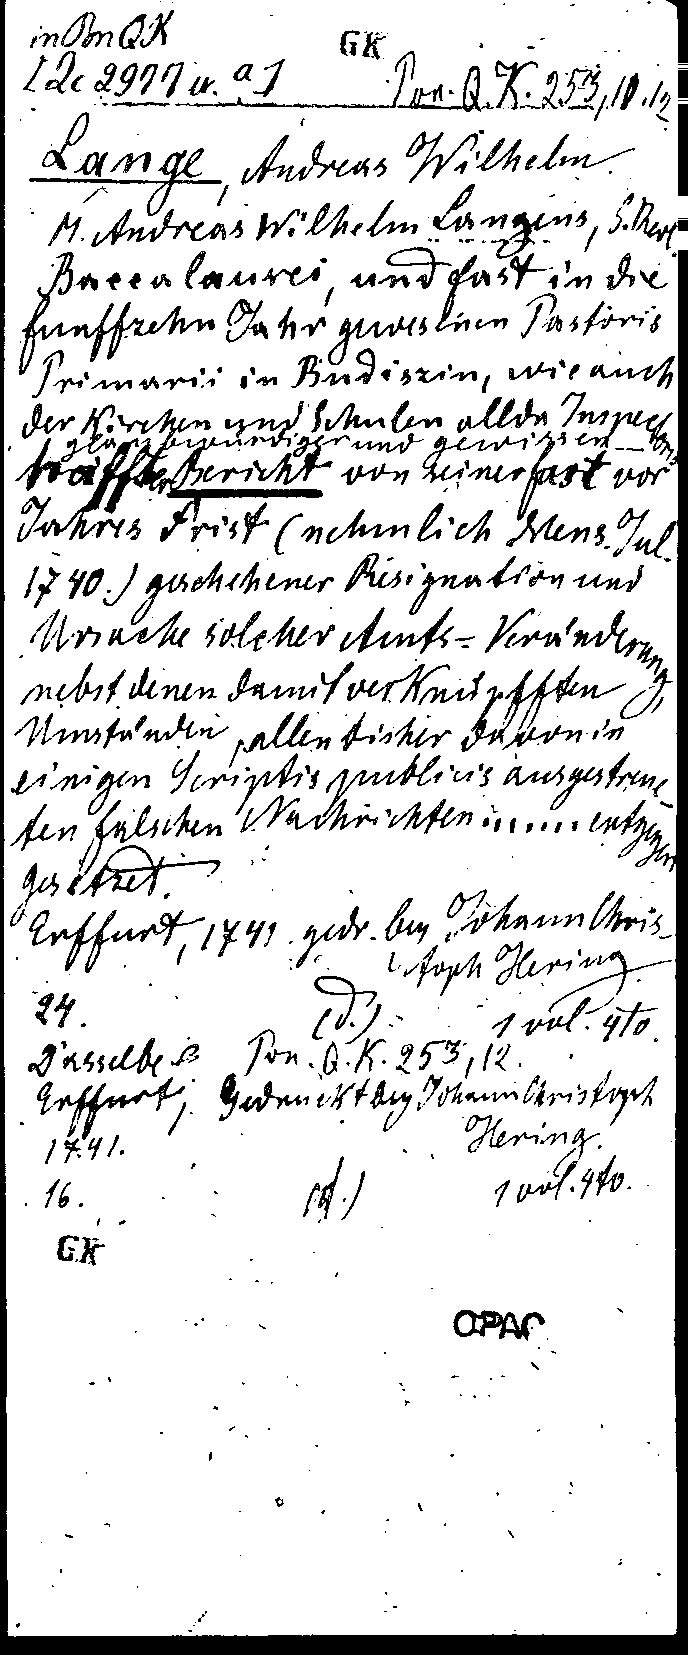 in Bm QK
GK
[2c 2977 u. a]
Pon. Q. K. 253, 10.12
Lange, Andreas Wilhelm.
M. Andreas Wilhelm Langens, S. Theol.
Baccalaurei, und fast in die
funffzehn Jahr gewesenen Pastoris
Primarii in Budiszin, wie auch
der Kirchen und Schulen allda Inspectoris
glaubwürdiger und gewissen
haffter Bericht von seiner fast vor
Jahres Frist (nehmlich Mens. Jul.
1740.) geschehener Resignation und
Ursache solcher Amts-Veränderung,
nebst denen damit verknüpfften
Umständen, allen bisher davon in
einigen Scriptis publicis ausgestreue-
ten falschen Nachrichten ...... entgegen
gesetzet.
Erffurt, 1741 gedr. bey Johann Chris-
toph Hering
24. (d.) 1 vol. 4to.
Dasselbe Pon. Q. K. 253, 12.
Erffurt, Gedruckt bey Johann Christoph
1741. Hering.
16. (d.) 1 vol. 4to.
GK
OPAC